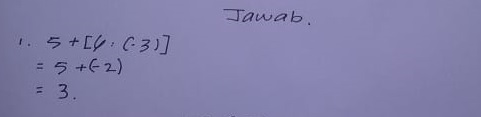 Jawab.
1. 5 + [6 : (-3)]
= 5 + (-2)
= 3.